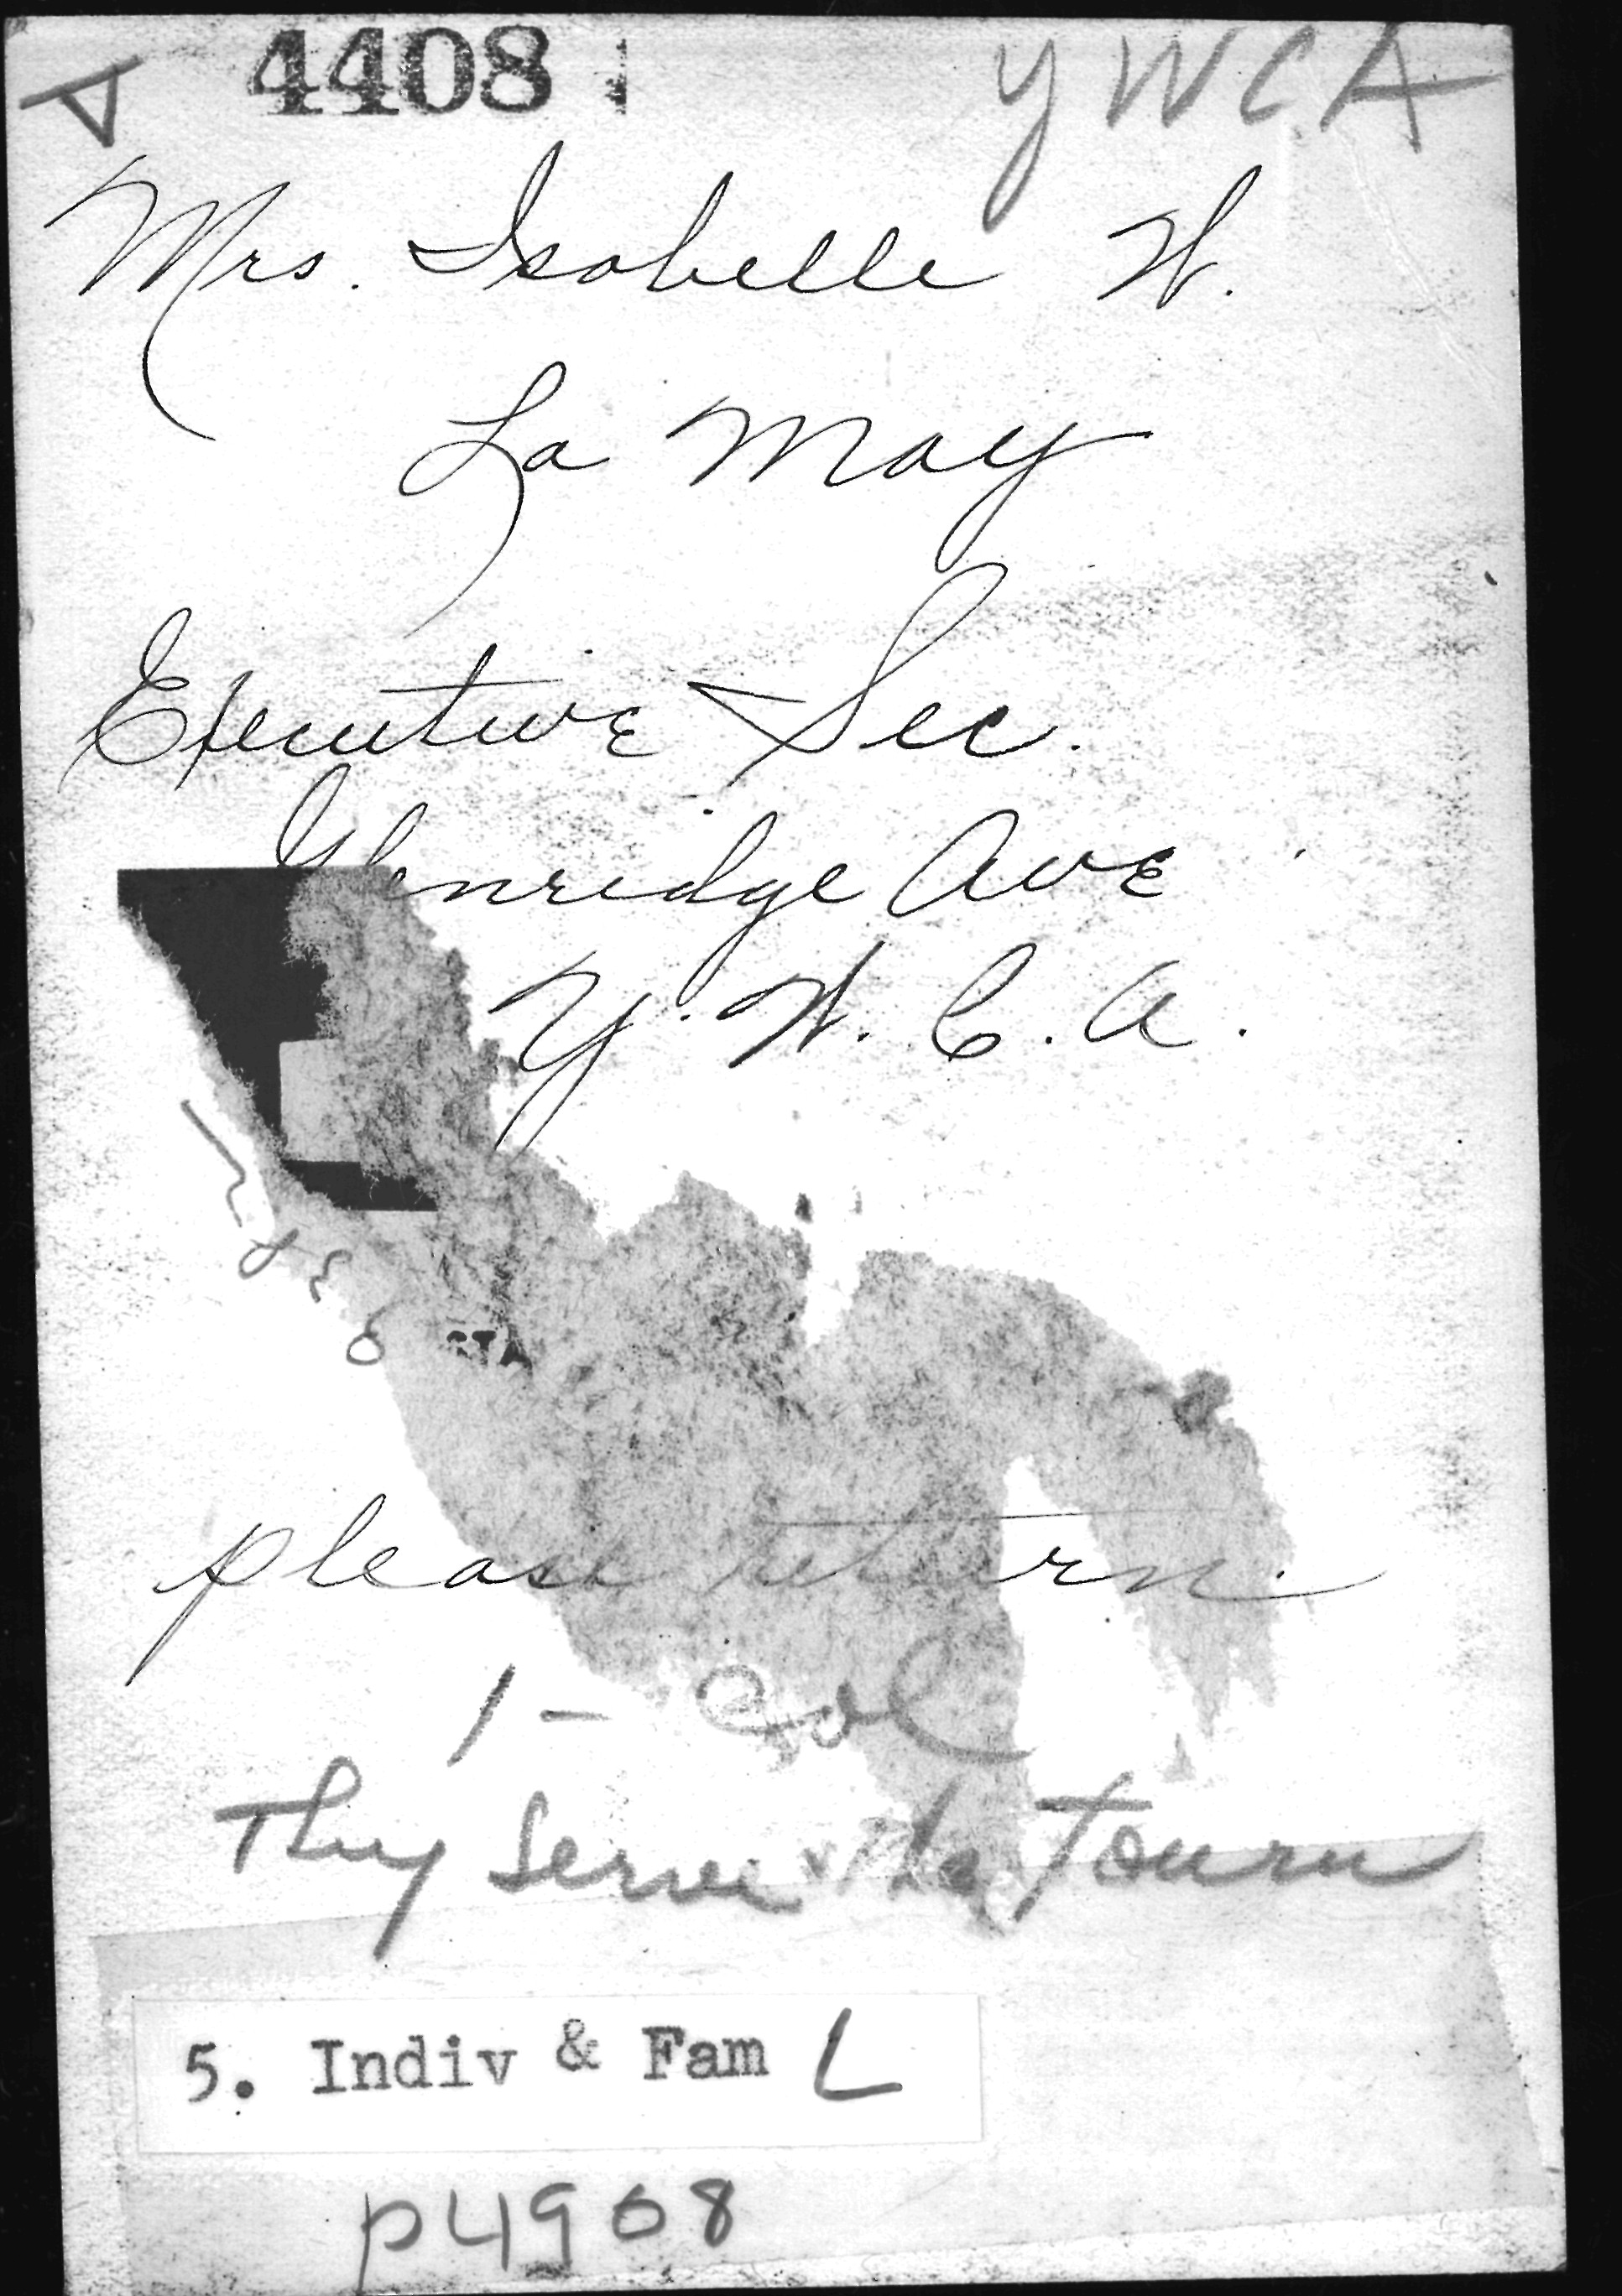 4408
YWCA
Mrs. Isabelle W.
La May
Executive Sec.
Glenridge Ave
Y. W. C. A.
STA
please return.
1 - Col
They Serve The Town
5. Indiv & Fam L
P4908